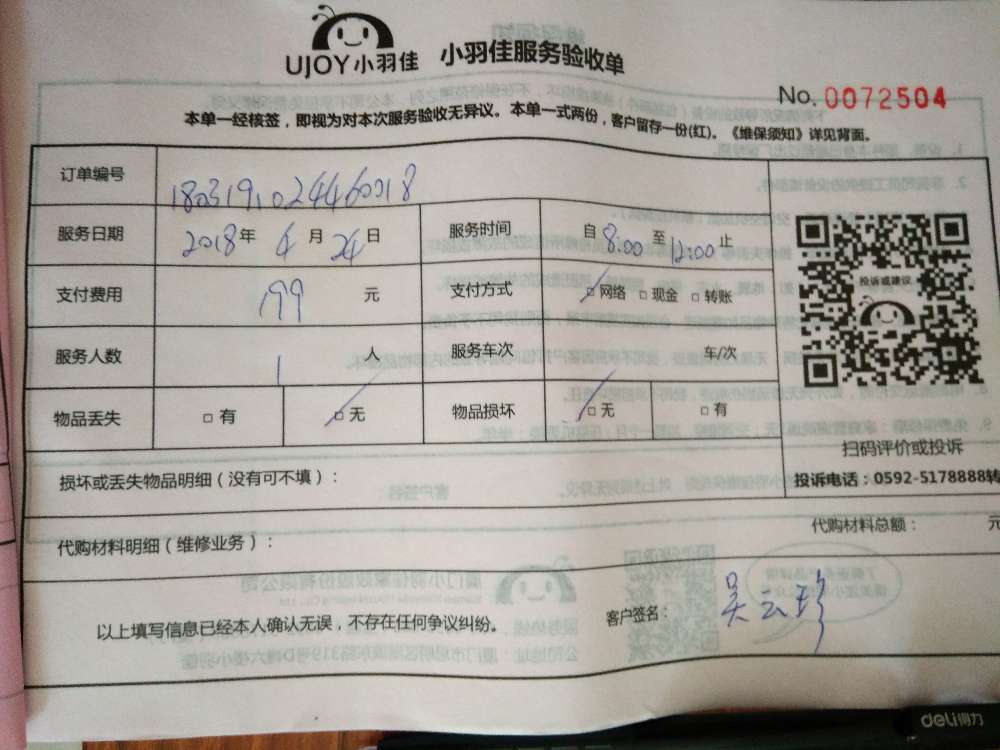 UJOY小羽佳 小羽佳服务验收单
No. 0072504
本单一经核签，即视为对本次服务验收无异议。本单一式两份，客户留存一份(红)。《维保须知》详见背面。
订单编号 1803191024460018
服务日期 2018年 4月 24日 服务时间 自8:00至12:00止
支付费用 199 元 支付方式 □网络 □现金 □转账
投诉或建议
服务人数 1 人 服务车次 车/次
物品丢失 □有 □无 物品损坏 □无 □有
扫码评价或投诉
损坏或丢失物品明细（没有可不填）：
投诉电话：0592-5178888转
代购材料明细（维修业务）：
代购材料总额： 元
以上填写信息已经本人确认无误，不存在任何争议纠纷。
客户签名：吴云珍
deli得力